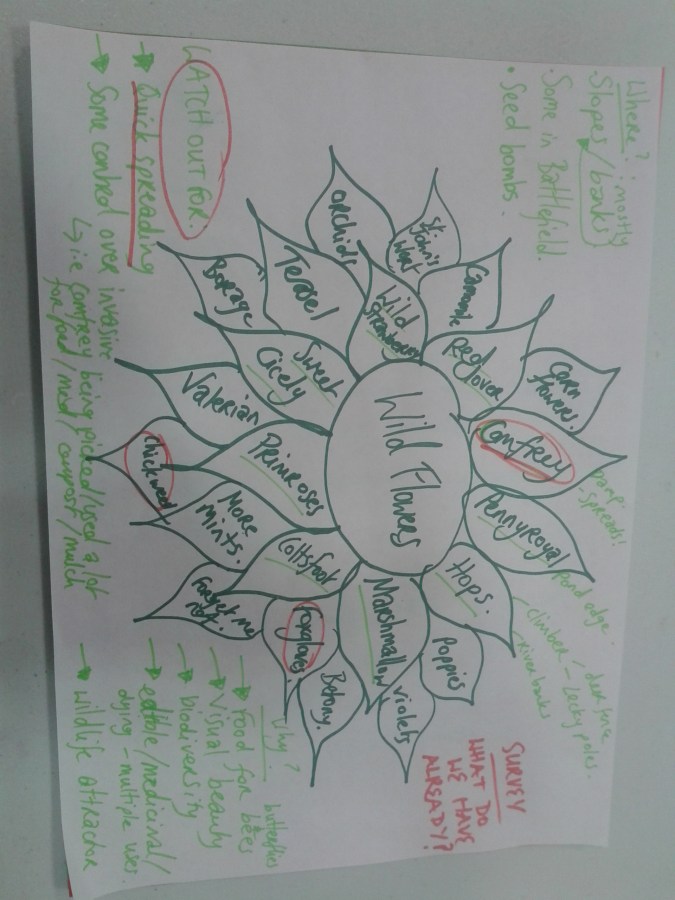 Where? : mostly
Slopes/banks
• Some in Battlefield.
• Seed bombs.
SURVEY
WHAT DO
WE HAVE
ALREADY?
damp
- spreads!
Pond edge.
climber -
Lecky poles.
Riverbanks
Wild Flowers
Corn
flowers.
Comfrey
Pennyroyal
Hops.
Poppies
Violets
Marshmallow
Betony.
Foxgloves
Coltsfoot
Forget me
not.
More
mints.
Chickweed
Primroses
Valerian
Sweet
Cicely
Borage
Teasel
Wild
Strawberry
Orchids
St John's
Wort
Camomile
Red Clover
WATCH OUT FOR.
→ Quick spreading
→ Some control over invasive
↳ i.e Comfrey being picked/used a lot
for food/med/compost/mulch
Why?
→ Food for bees
butterflies
→ Visual beauty
→ biodiversity
→ edible/medicinal/
dying - multiple uses.
→ wildlife attractor